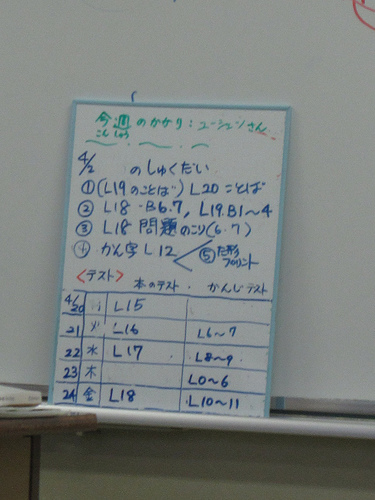 今週のかかり:ユージェンさん
こんしゅう
4/2 のしゅくだい
①(L19のことば) L20 ことば
② L18・B6.7, L19.B1〜4
③ L18 問題のこり(6・7)
④ かん字 L12
⑤た形プリント
<テスト> 本のテスト・かんじテスト
4/20 月 L15
21 火 L16 L6〜7
22 水 L17 L8〜9
23 木 L0〜6
24 金 L18 L10〜11